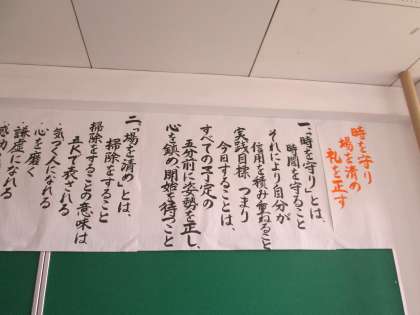 時を守り
場を清め
礼を正す
一、「時を守り」とは、
時間を守ること
それにより自分が
信用を積み重ねること
実践目標 つまり
今日することは、
すべての予定の
五分前に姿勢を正し、
心を鎮め開始を待つこと
二、「場を清め」とは、
掃除をすること
掃除をすることの意味は
5Kで表される
・気づく人になれる
・心を磨く
・謙虚になれる